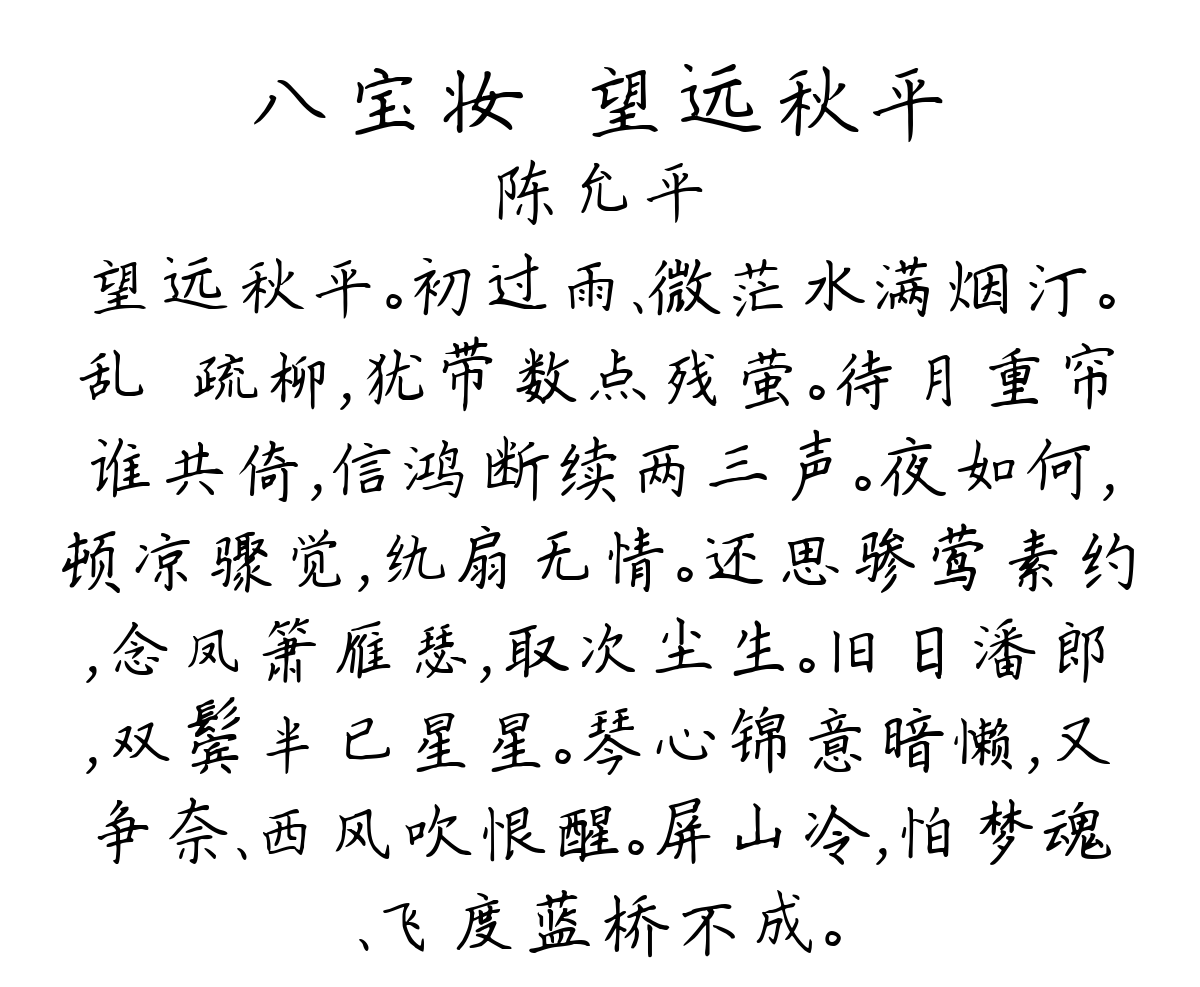 八宝妆 望远秋平
陈允平
望远秋平。初过雨、微茫水满烟汀。
乱 疏柳,犹带数点残萤。待月重帘
谁共倚,信鸿断续两三声。夜如何,
顿凉骤觉,纨扇无情。还思骖莺素约
,念凤箫雁瑟,取次尘生。旧日潘郎
,双鬓半已星星。琴心锦意暗懒,又
争奈、西风吹恨醒。屏山冷,怕梦魂
、飞度蓝桥不成。